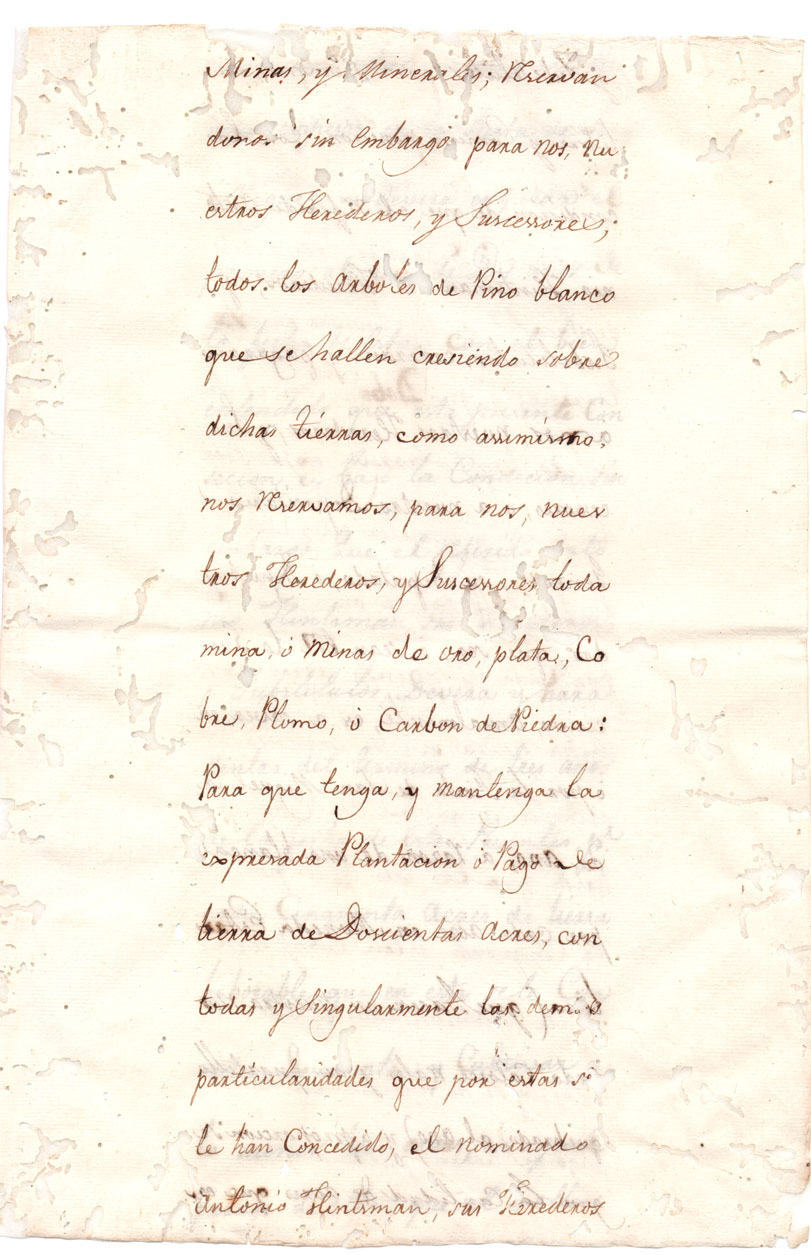 Minas, y Minerales; Reservan
donos sin embargo para nos, nu
estros Herederos, y Suscessores;
todos los Arboles de Pino blanco
que se hallen cresiendo sobre
dichas tierras, como assimismo,
nos Reservamos, para nos, nues
tros Herederos, y Suscessores toda
mina, ó Minas de oro, plata, Co
bre, Plomo, ó Carbon de Piedra:
Para que tenga, y mantenga la
expresada Plantacion ó Pago de
tierra de Doscientas Acres, con
todas y Singularmente las demas
particularidades que por estas se
le han Concedido, el nominado
Antonio Hintsman, sus Herederos